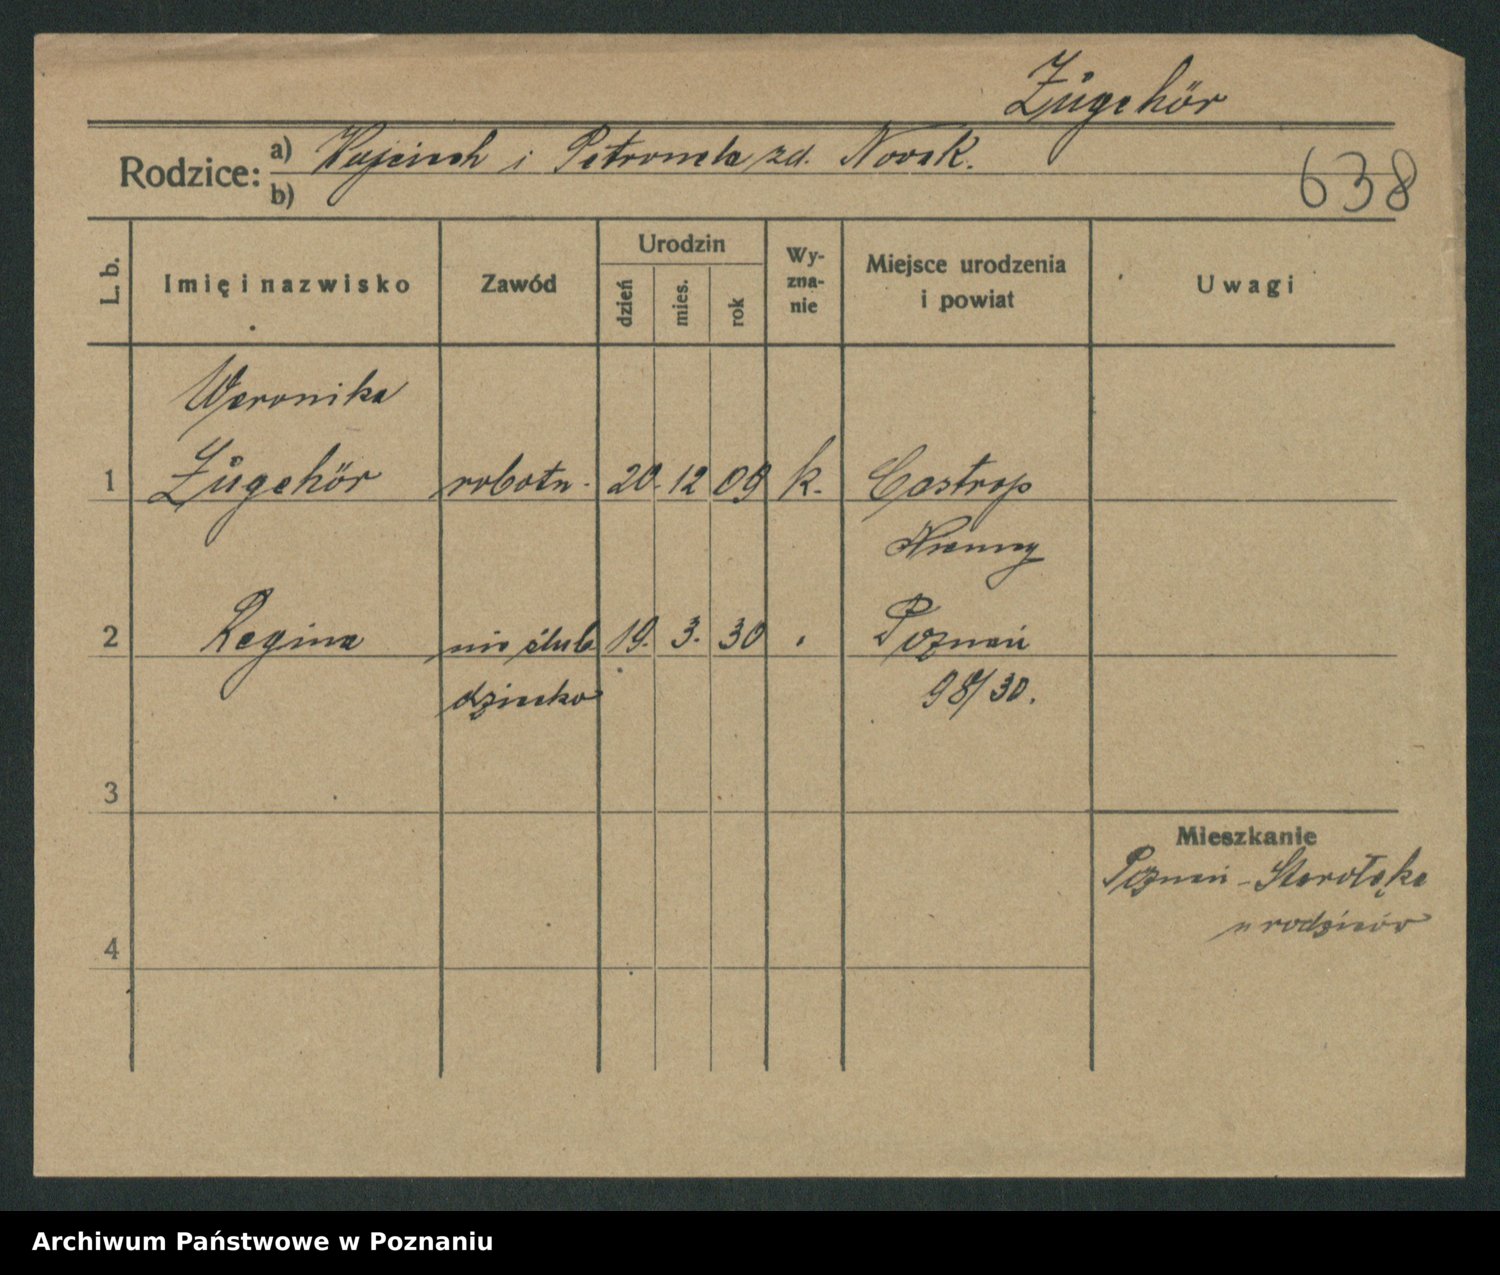 Zůgehör
Rodzice: a) Wojciech i Petronela zd. Nowak.
b)
638
L. b.
Imię i nazwisko
Zawód
Urodzin
dzień
mies.
rok
Wy-
zna-
nie
Miejsce urodzenia
i powiat
Uwagi
Weronika
1 Zůgehör robotn. 20. 12 09 k. Castrop
Niemcy
2 Regina nie ślub 19. 3. 30 Poznań
dziecko 98/30.
3
Mieszkanie
Poznań - Starołęka
u rodziców
4
Archiwum Państwowe w Poznaniu